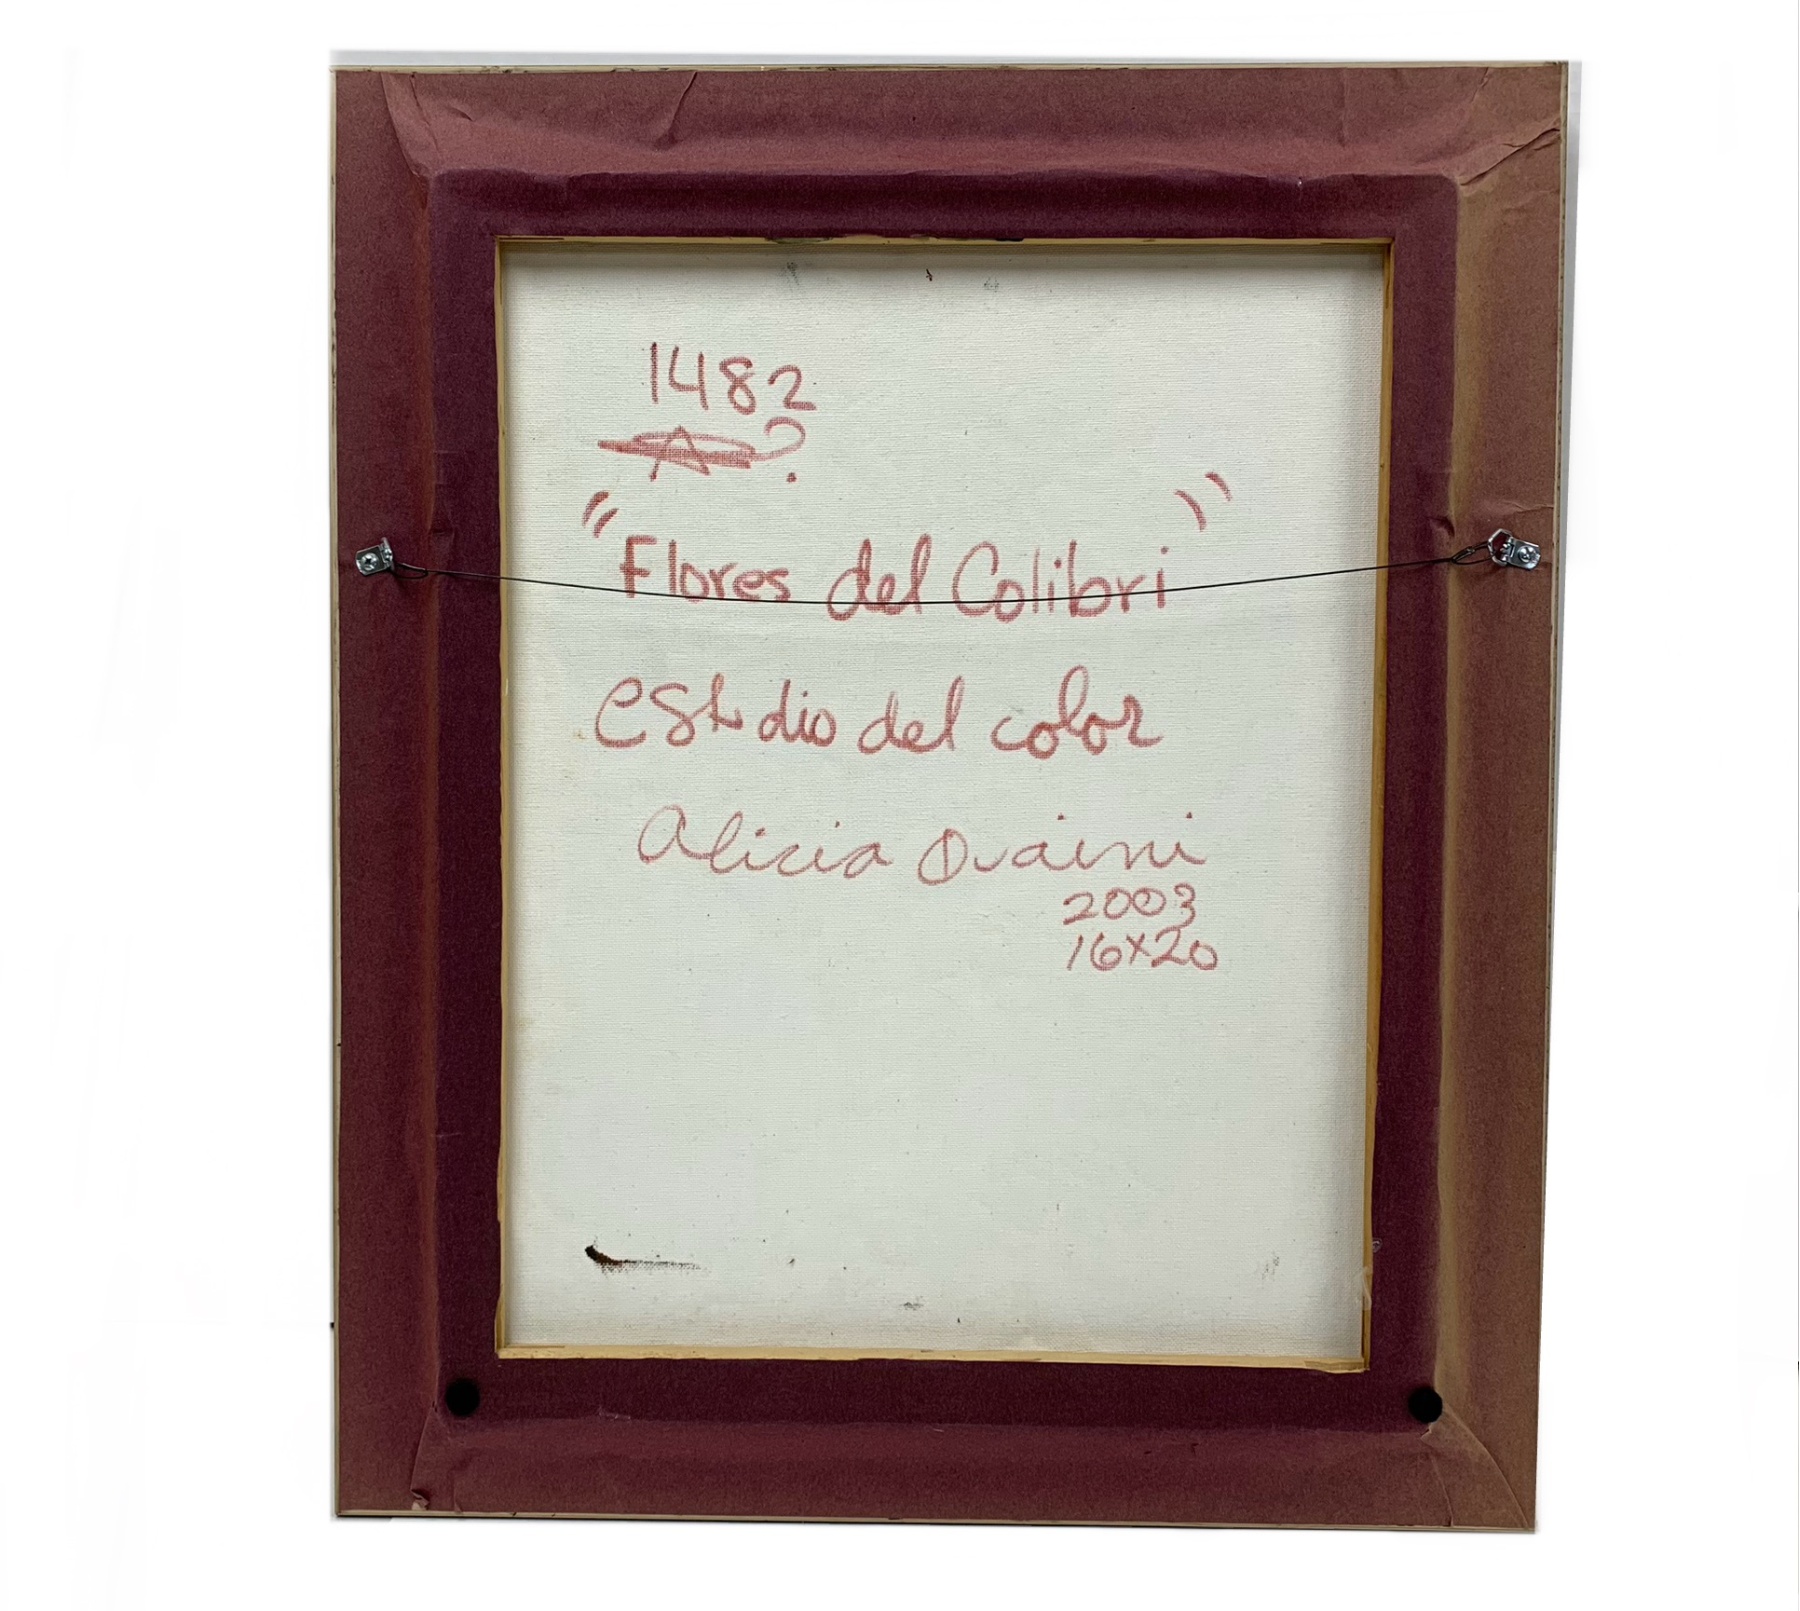 1482
?
"Flores del Colibri"
estudio del color
Alicia Quaini
2003
16x20